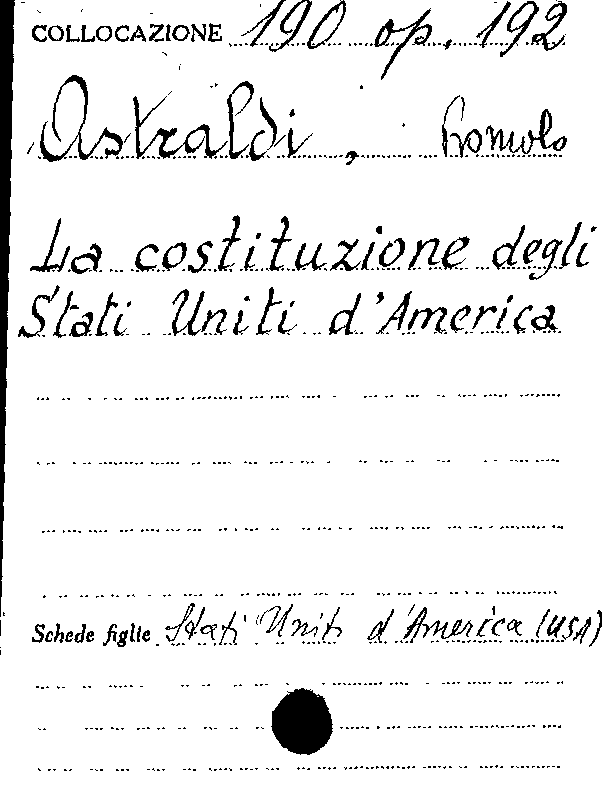 COLLOCAZIONE 190 op. 192
Astraldi, Romolo
La costituzione degli
Stati Uniti d'America
Schede figlie Stati Uniti d'America (USA)